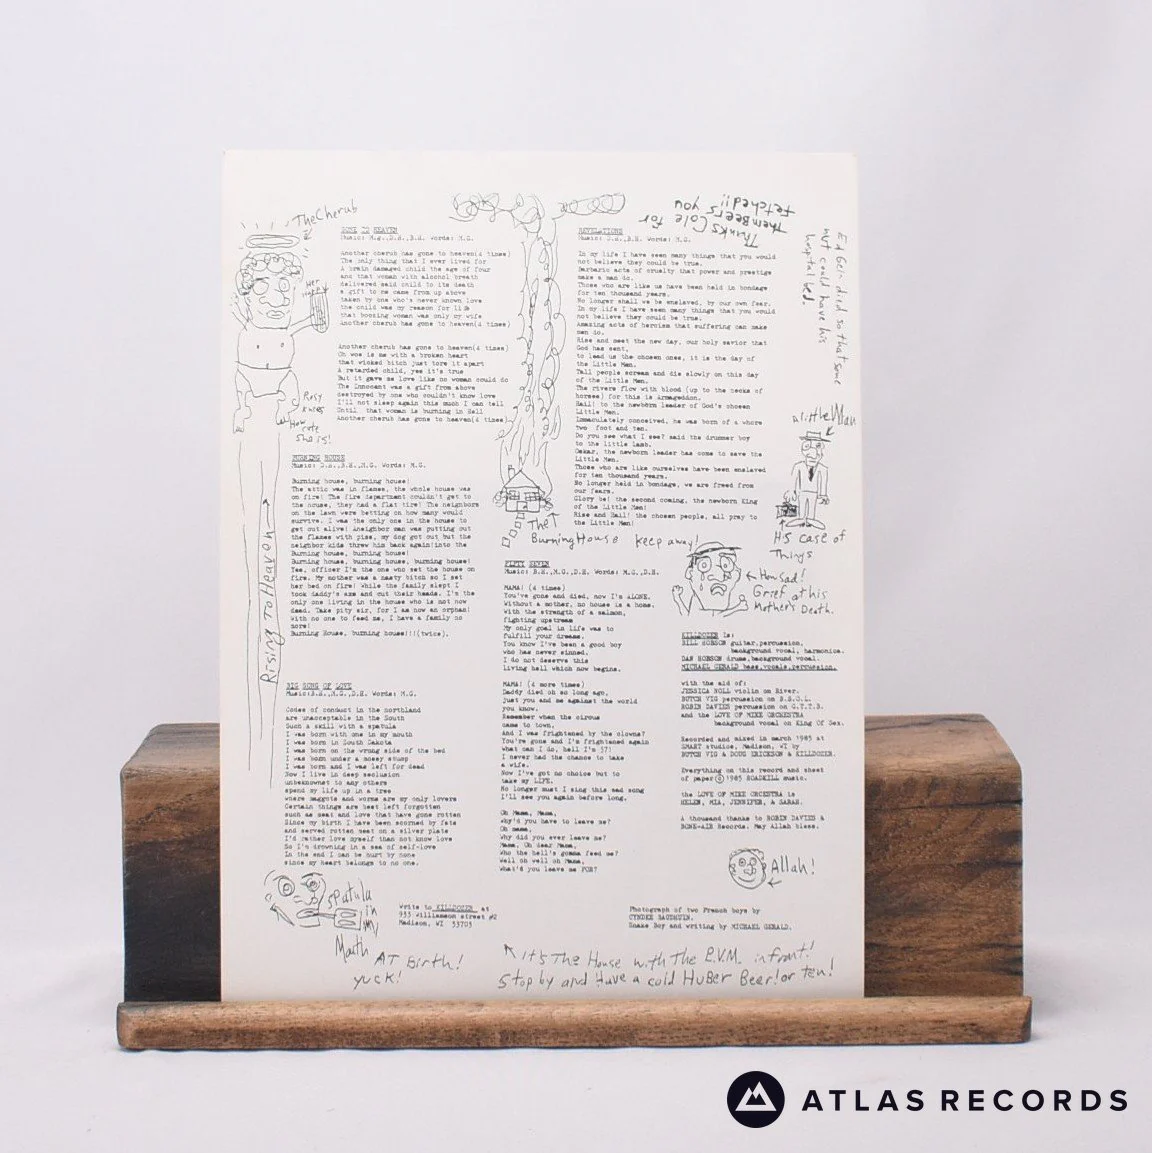 The Cherub
GONE TO HEAVEN
Music: M.G.,D.H.,B.H. Words: M.G.
Another cherub has gone to heaven(4 times)
The only thing that I ever lived for
A brain damaged child the age of four
and that woman with alcohol breath
delivered said child to its death
a gift to me came from up above
taken by one who's never known love
the child was my reason for life
that boozing woman was only my wife
Another cherub has gone to heaven(4 times)
Another cherub has gone to heaven(4 times)
Oh woe is me with a broken heart
that wicked bitch just tore it apart
A retarded child, yes it's true
But it gave me love like no woman could do
The Innocent was a gift from above
destroyed by one who couldn't know love
I'll not sleep again this much I can tell
Until that woman is burning in Hell
Another cherub has gone to heaven(4 times)
Her Harp
Rosy Knees
How cute
she is!
Rising To Heaven
BURNING HOUSE
Music: D.H.,B.H.,M.G. Words: M.G.
Burning house, burning house!
The attic was in flames, the whole house was
on fire! The fire department couldn't get to
the house, they had a flat tire! The neighbors
on the lawn were betting on how many would
survive. I was the only one in the house to
get out alive! Aneighbor man was putting out
the flames with piss, my dog got out but the
neighbor kids threw him back again!into the
Burning house, burning house!
Burning house, burning house, burning house!
Yes, officer I'm the one who set the house on
fire. My mother was a nasty bitch so I set
her bed on fire! While the family slept I
took daddy's axe and cut their heads. I'm the
only one living in the house who is not now
dead. Take pity sir, for I am now an orphan!
With no one to feed me, I have a family no
more!
Burning House, burning house!!!(twice).
BIG SONG OF LOVE
Music:B.H.,M.G.,D.H. Words: M.G.
Codes of conduct in the northland
are unacceptable in the South
Such a skill with a spatula
I was born with one in my mouth
I was born in South Dakota
I was born on the wrong side of the bed
I was born under a mossy stump
I was born and I was left for dead
Now I live in deep seclusion
unbeknownst to any others
spend my life up in a tree
where maggots and worms are my only lovers
Certain things are best left forgotten
such as meat and love that have gone rotten
Since my birth I have been scorned by fate
and served rotten meat on a silver plate
I'd rather love myself than not know love
So I'm drowning in a sea of self-love
In the end I can be hurt by none
since my heart belongs to no one.
spatula
in
my
Mouth AT Birth!
yuck!
Write to KILLDOZER at
933 Williamson street #2
Madison, WI 53703
REVELATIONS
Music: D.H.,B.H. Words: M.G.
In my life I have seen many things that you would
not believe they could be true.
Barbaric acts of cruelty that power and prestige
make a man do.
Those who are like us have been held in bondage
for ten thousand years.
No longer shall we be enslaved, by our own fear.
In my life I have seen many things that you would
not believe they could be true:
Amazing acts of heroism that suffering can make
men do.
Rise and meet the new day, our holy savior that
God has sent,
to lead us the chosen ones, it is the day of
the Little Men.
Tall people scream and die slowly on this day
of the Little Men.
The rivers flow with blood (up to the necks of
horses) for this is Armageddon.
Hail! to the newborn leader of God's chosen
Little Men.
Immaculately conceived, he was born of a whore
two foot and ten.
Do you see what I see? said the drummer boy
to the little lamb.
Oskar, the newborn leader has come to save the
Little Men.
Those who are like ourselves have been enslaved
for ten thousand years.
No longer held in bondage, we are freed from
our fears.
Glory be! the second coming, the newborn King
of the Little Men!
Rise and Hail! the chosen people, all pray to
the Little Men!
Thinks Cole for
them Beers you
fetched!!
Ed Gein died so that some
nut could have his
hospital bed.
a little Man
His case of
Things
The
Burning House keep away!
How sad!
Grief at his
Mother's Death.
FIFTY SEVEN
Music: B.H.,M.G.,D.H. Words: M.G.,D.H.
MAMA! (4 times)
You've gone and died, now I'm ALONE.
Without a mother, no house is a home.
With the strength of a salmon,
fighting upstream
My only goal in life was to
fulfill your dreams.
You know I've been a good boy
who has never sinned.
I do not deserve this
living hell which now begins.
MAMA! (4 more times)
Daddy died oh so long ago,
just you and me against the world
you know.
Remember when the circus
came to town,
And I was frightened by the clowns?
You're gone and I'm frightened again
What can I do, hell I'm 57!
I never had the chance to take
a wife.
Now I've got no choice but to
take my LIFE.
No longer must I sing this sad song
I'll see you again before long.
Oh Mama, Mama,
why'd you have to leave me?
Oh mama,
Why did you ever leave me?
Mama, Oh dear Mama,
Who the hell's gonna feed me?
Well oh well oh Mama,
What'd you leave me FOR?
KILLDOZER is:
BILL HOBSON guitar,percussion,
background vocal, harmonica.
DAN HOBSON drums,background vocal.
MICHAEL GERALD bass,vocals,percussion.
with the aid of:
JESSICA NOLL violin on River.
BUTCH VIG percussion on B.S.O.L.
ROBIN DAVIES percussion on G.T.T.B.
and the LOVE OF MIKE ORCHESTRA
background vocal on King Of Sex.
Recorded and mixed in march 1985 at
SMART studios, Madison, WI by
BUTCH VIG & DOUG ERICKSON & KILLDOZER.
Everything on this record and sheet
of paper © 1985 ROADKILL music.
the LOVE OF MIKE ORCESTRA is
HELEN, MIA, JENNIFER, & SARAH.
A thousand thanks to ROBIN DAVIES &
BONE-AIR Records. May Allah bless.
Allah!
Photograph of two French boys by
CYNDEE BAUDHUIN.
Snake Boy and writing by MICHAEL GERALD.
It's The House with the B.V.M. in front!
Stop by and Have a cold Huber Beer! or ten!
ATLAS RECORDS